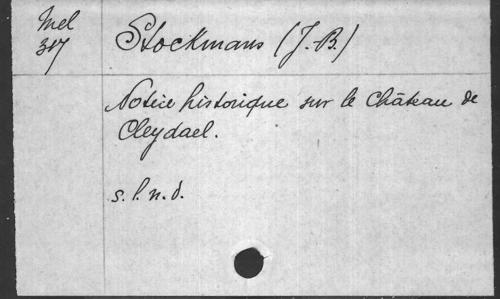 Mel
317
Stockmans (J.-B.)
Notice historique sur le Château de
Cleydael.
s. l. n. d.